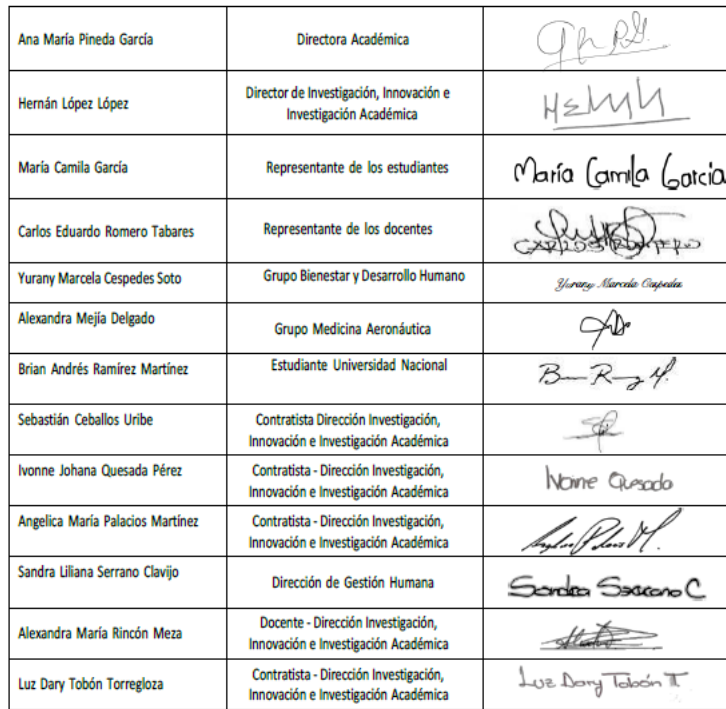 Ana María Pineda García
Directora Académica
Hernán López López
Director de Investigación, Innovación e
Investigación Académica
María Camila García
Representante de los estudiantes
María Camila García
Carlos Eduardo Romero Tabares
Representante de los docentes
CARLOS ROMERO
Yurany Marcela Cespedes Soto
Grupo Bienestar y Desarrollo Humano
Yurany Marcela Cespedes
Alexandra Mejía Delgado
Grupo Medicina Aeronáutica
Brian Andrés Ramírez Martínez
Estudiante Universidad Nacional
Sebastián Ceballos Uribe
Contratista Dirección Investigación,
Innovación e Investigación Académica
Ivonne Johana Quesada Pérez
Contratista - Dirección Investigación,
Innovación e Investigación Académica
Ivonne Quesada
Angelica María Palacios Martínez
Contratista - Dirección Investigación,
Innovación e Investigación Académica
Sandra Liliana Serrano Clavijo
Dirección de Gestión Humana
Sandra Serrano C
Alexandra María Rincón Meza
Docente - Dirección Investigación,
Innovación e Investigación Académica
Luz Dary Tobón Torregloza
Contratista - Dirección Investigación,
Innovación e Investigación Académica
Luz Dary Tobón T.